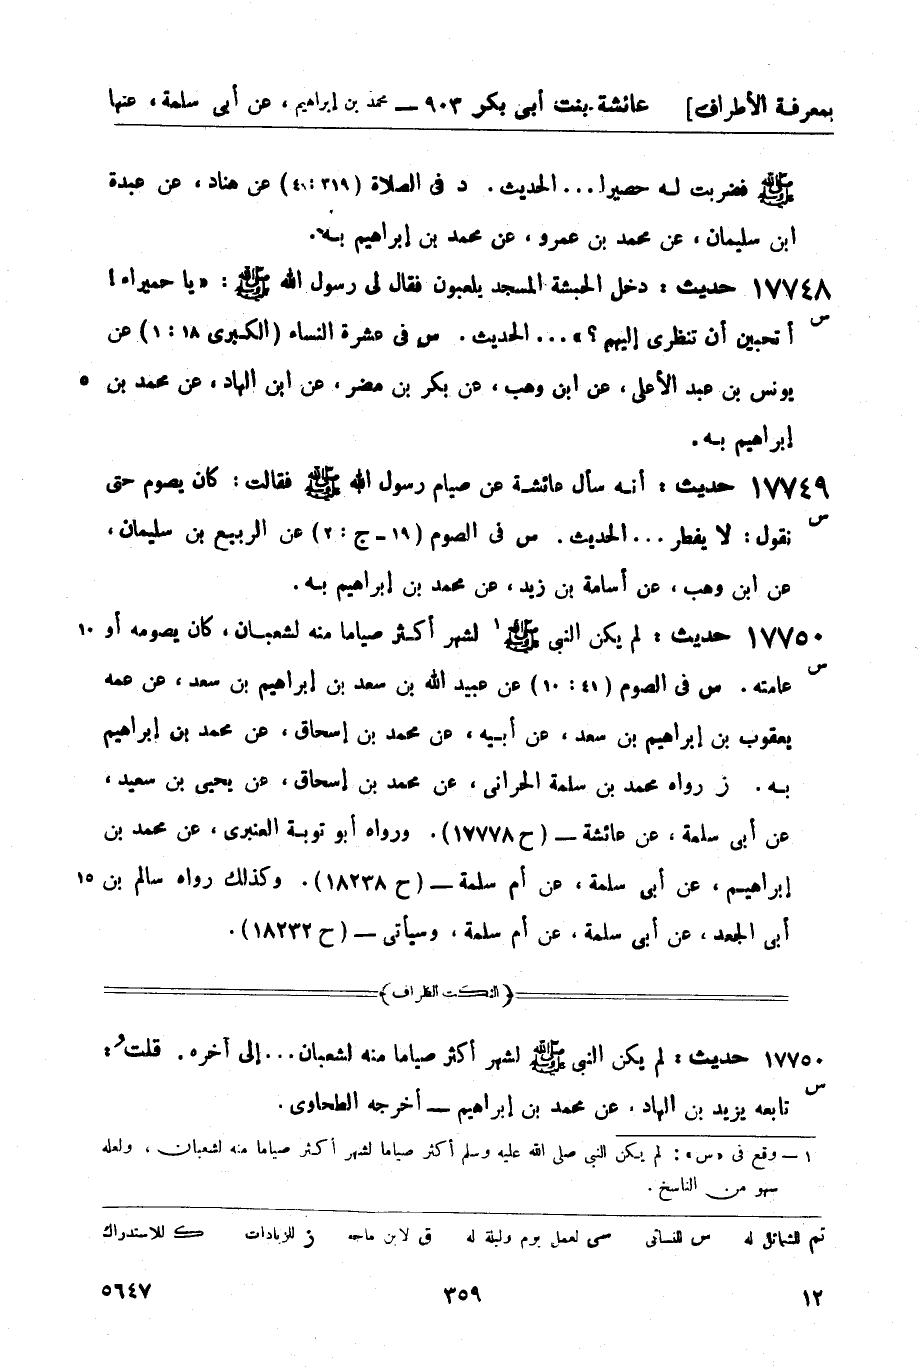 بمعرفة الأطراف] عائشة بنت أبى بكر ٩٠٣ — محمد بن إبراهيم ، عن أبى سلمة ، عنها
ﷺ فضربت له حصيرا ... الحديث . د فى الصلاة (٣١٩ : ٤) عن هناد ، عن عبدة
ابن سليمان ، عن محمد بن عمرو ، عن محمد بن إبراهيم به .
١٧٧٤٨ حديث : دخل الحبشة المسجد يلعبون فقال لى رسول الله ﷺ : «يا حميراء !
س أتحبين أن تنظرى إليهم ؟» ... الحديث . س فى عشرة النساء (الكبرى ١٨ : ١) عن
يونس بن عبد الأعلى ، عن ابن وهب ، عن بكر بن مضر ، عن ابن الهاد ، عن محمد بن ٥
إبراهيم به .
١٧٧٤٩ حديث : أنه سأل عائشة عن صيام رسول الله ﷺ فقالت : كان يصوم حتى
س نقول : لا يفطر ... الحديث . س فى الصوم (١٩ - ج : ٢) عن الربيع بن سليمان ،
عن ابن وهب ، عن أسامة بن زيد ، عن محمد بن إبراهيم به .
١٧٧٥٠ حديث : لم يكن النبى ﷺ ١ لشهر أكثر صياما منه لشعبان ، كان يصومه أو ١٠
س عامته . س فى الصوم (٤١ : ١٠) عن عبيد الله بن سعد بن إبراهيم بن سعد ، عن عمه
يعقوب بن إبراهيم بن سعد ، عن أبيه ، عن محمد بن إسحاق ، عن محمد بن إبراهيم
به . ز رواه محمد بن سلمة الحرانى ، عن محمد بن إسحاق ، عن يحيى بن سعيد ،
عن أبى سلمة ، عن عائشة — (ح ١٧٧٧٨) . ورواه أبو توبة العنبرى ، عن محمد بن
إبراهيم ، عن أبى سلمة ، عن أم سلمة — (ح ١٨٢٣٨) . وكذلك رواه سالم بن ١٥
أبى الجعد ، عن أبى سلمة ، عن أم سلمة ، وسيأتى — (ح ١٨٢٣٢) .
﴿النكت الظراف﴾
١٧٧٥٠ حديث : لم يكن النبى ﷺ لشهر أكثر صياما منه لشعبان ... إلى آخره . قلت :
س تابعه يزيد بن الهاد ، عن محمد بن إبراهيم — أخرجه الطحاوى .
١ — وقع فى «س» : لم يكن النبى صلى الله عليه وسلم أكثر صياما لشهر أكثر صياما منه لشعبان ، ولعله
سهو من الناسخ .
تم للشمائل له س للنسائى سى لعمل يوم وليلة له ق لابن ماجه ز للزيادات ك للاستدراك
١٢ ٣٥٩ ٥٦٤٧